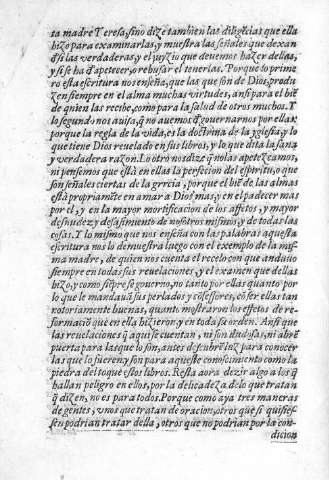 ta madre Teresa, sino dize tambien las diligẽcias que ella
hizo para examinarlas, y muestra las señales que dexan
q̃ si las verdaderas, y el juyzio que deuemos hazer dellas,
y si se ha d̃ apetecer, o rehusar el tenerlas. Porque lo prime
ro esta escritura nos enseña, q̃ las que son de Dios, produ
zen siempre en el alma muchas virtudes, ansi para el biẽ
de quien las recibe, como para la salud de otros muchos. Y
lo segundo nos auisa, q̃ no auemos d̃ gouernarnos por ellas:
porque la regla de la vida, es la doctrina de la yglesia, y lo
que tiene Dios reuelado en sus libros, y lo que dita la sana
y verdadera razon. Lo otro nos dize q̃ no las apetezcamos,
ni pensemos que està en ellas la perfecion del espiritu, o que
son señales ciertas de la grrcia, porque el biẽ de las almas
està propriamẽte en amar a Dios mas, y en el padecer mas
por el, y en la mayor mortificacion de los affetos, y mayor
desnudez y desasimiento de nosotros mismos, y de todas las
cosas. Y lo mismo que nos enseña con las palabras aquesta
escritura nos lo demuestra luego con el exemplo de la mis-
ma madre, de quien nos cuenta el recelo con que anduuo
siempre en todas sus reuelaciones, y el examen que dellas
hizo, y como siẽpre se gouerno, no tanto por ellas quanto por
lo que le mandauã sus perlados y cõfessores, cõ ser ellas tan
notoriamente buenas, quanto mostraron los effetos de re-
formaciõ que en ella hizieron, y en toda su orden. Ansi que
las reuelaciones q̃ aqui se cuentan, ni son dudosas, ni abrẽ
puerta para las que lo son, antes descubrẽ luz para conocer
las que lo fueren y son para aqueste conocimiento como la
piedra del toque estos libros. Resta aora dezir algo a los q̃
hallan peligro en ellos, por la delicadeza de lo que tratan
q̃ dizen, no es para todos. Porque como aya tres maneras
de gentes, vnos que tratan de oracion, otros que si quisies-
sen podrian tratar della, otros que no podrian por la con-
dicion